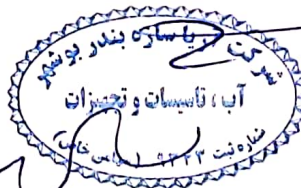 شرکت دریا سازه بندر بوشهر
آب ، تاسیسات و تجهیزات
شماره ثبت ۹۲۲۳ (سهامی خاص)